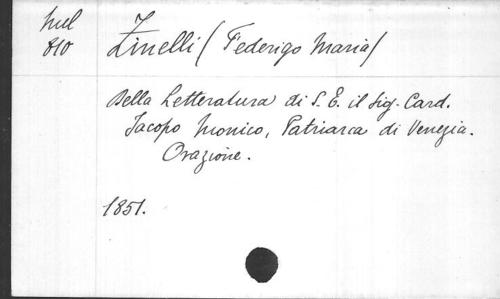 Mul
810
Zinelli (Federigo Maria)
Della Letteratura di S. E. il Sig. Card.
Jacopo Monico, Patriarca di Venezia.
Orazione.
1851.